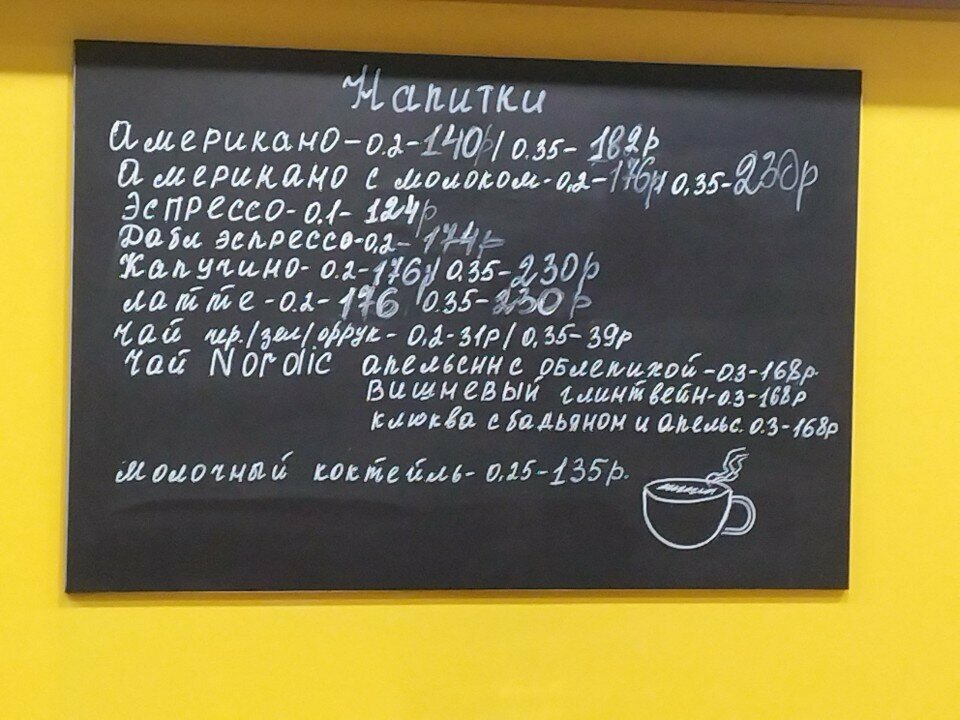 Напитки
Американо-0.2-140р/0.35-182р
Американо с молоком-0,2-176р/0,35-230р
Эспрессо-0.1-124р
Дабл эспрессо-0,2-174р
Капучино-0.2-176р/0.35-230р
латте-0.2-176 0.35-230р
чай чер./зел/фрук-0,2-31р/0,35-39р
чай Nordic апельсин с облепихой-0.3-168р.
вишневый глинтвейн-0.3-168р
клюква с бадьяном и апельс. 0.3-168р
молочный коктейль-0,25-135р.